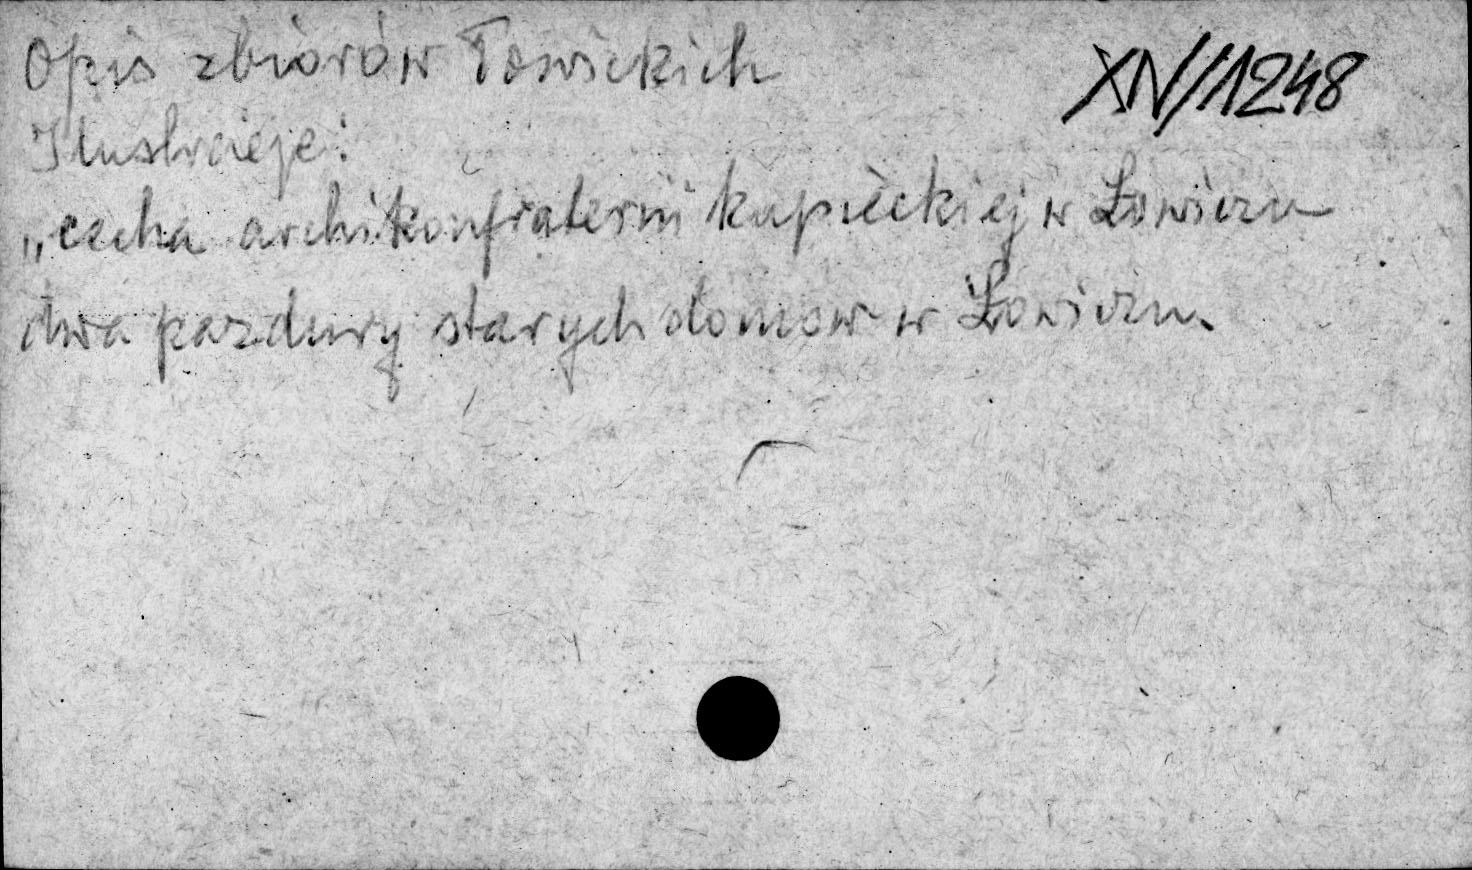 Opis zbiorów Łowickich
XIV/1248
Ilustracje:
„cecha archikonfraterni kupieckiej w Łowiczu
dwa pazdury starych domów w Łowiczu.